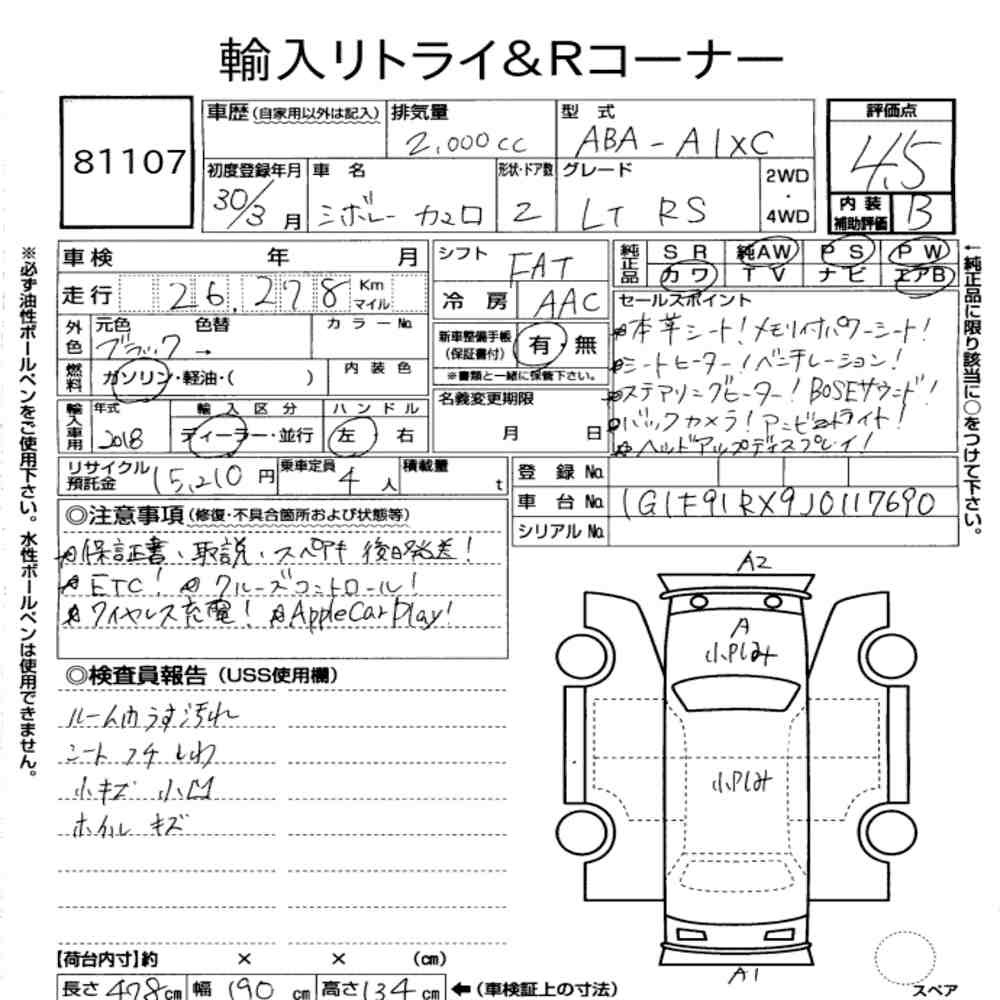 輸入リトライ&Rコーナー
81107
車歴(自家用以外は記入)
排気量
2,000cc
型 式
ABA-A1XC
評価点
4.5
初度登録年月
30/3月
車 名
シボレー カマロ
形状・ドア数
2
グレード
LT RS
2WD
・
4WD
内 装
補助評価
B
※必ず油性ボールペンをご使用下さい。水性ボールペンは使用できません。
車検 年 月
走行 26,278 Km
マイル
外色
元色 色替
ブラック →
カラーNo.
燃料
ガソリン・軽油・( )
内 装 色
輸入車用
年式
2018
輸 入 区 分
ディーラー・並行
ハ ン ド ル
左 右
リサイクル
預託金
15,210円
乗車定員
4人
積載量
t
シフト
FAT
冷 房
AAC
新車整備手帳
(保証書付)
有・無
※書類と一緒に保管下さい。
名義変更期限
月 日
純正品
SR 純AW PS PW
カワ TV ナビ エアB
セールスポイント
本革シート!メモリ付パワーシート!
シートヒーター!ベンチレーション!
ステアリングヒーター!BOSEサウンド!
バックカメラ!アンビエントライト!
ヘッドアップディスプレイ!
←純正品に限り該当に○をつけて下さい。
登 録 No.
車 台 No.
1G1F91RX9J0117690
シリアルNo.
◎注意事項(修復・不具合箇所および状態等)
保証書、取説、スペアキー後日発送!
ETC! クルーズコントロール!
ワイヤレス充電! AppleCarPlay!
◎検査員報告(USS使用欄)
ルーム内うす汚れ
シート フチ しわ
小キズ 小凹
ホイル キズ
A2
A
小PLみ
小PLみ
A1
スペア
【荷台内寸】約 × × (cm)
長さ478cm 幅190cm 高さ134cm ←(車検証上の寸法)